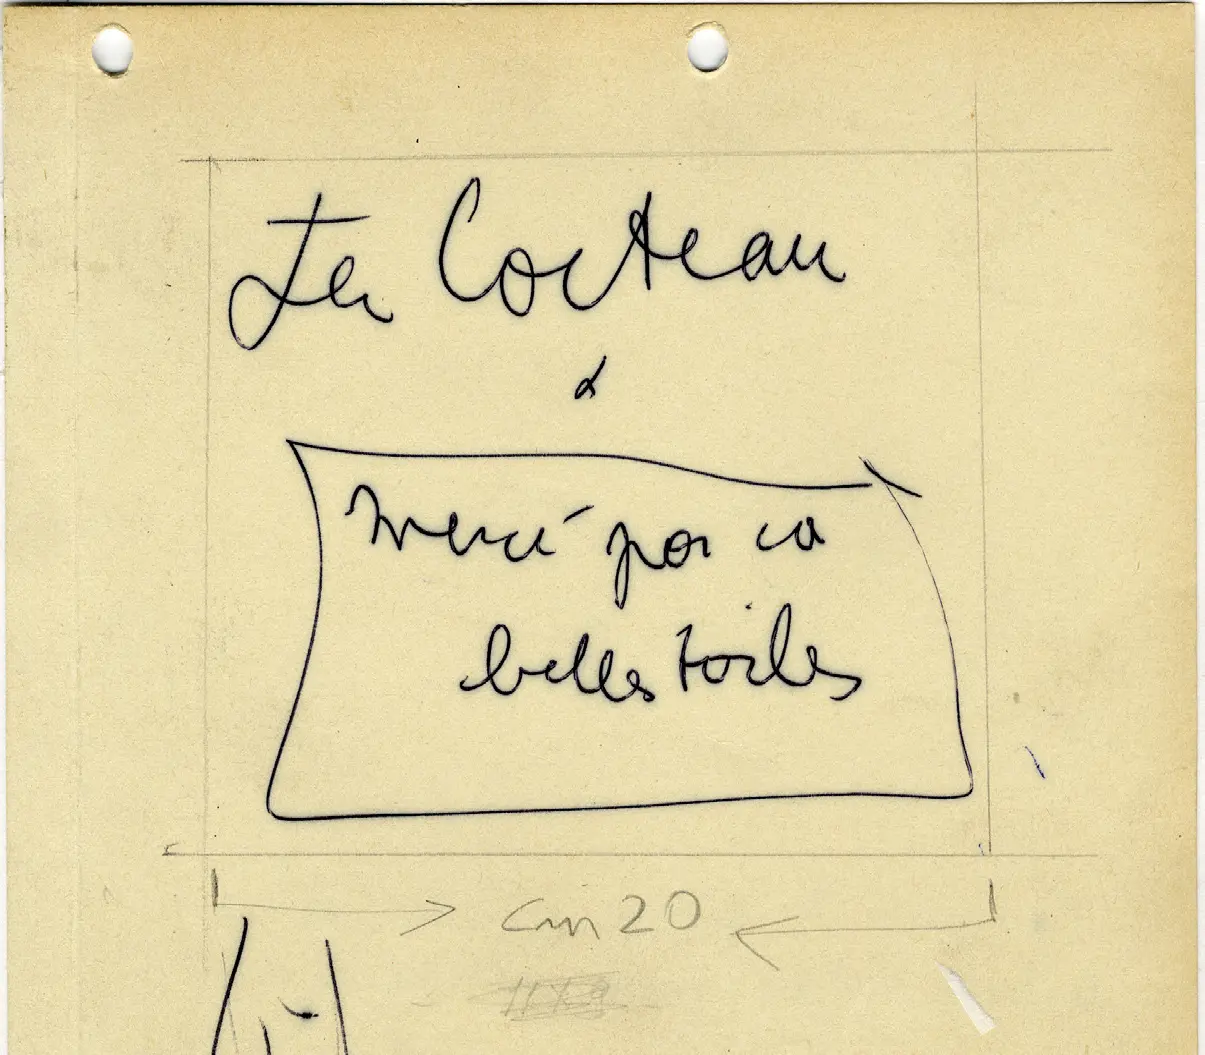 Jean Cocteau
merci por ca
belles toiles
cm 20